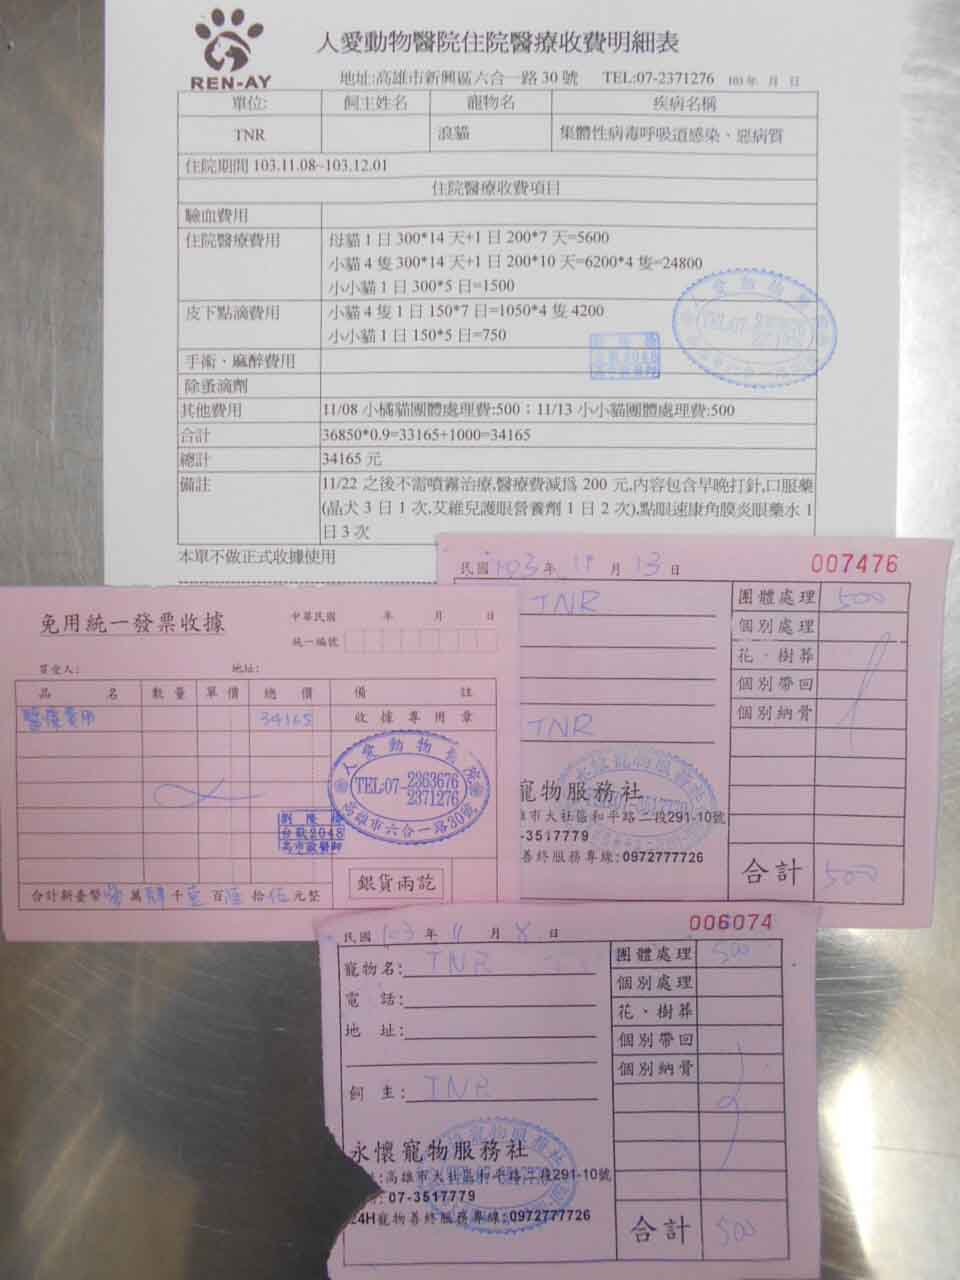 REN-AY
人愛動物醫院住院醫療收費明細表
地址:高雄市新興區六合一路30號 TEL:07-2371276 103年 月 日
單位: 飼主姓名 寵物名 疾病名稱
TNR 浪貓 集體性病毒呼吸道感染、惡病質
住院期間 103.11.08~103.12.01
住院醫療收費項目
驗血費用
住院醫療費用 母貓1日300*14天+1日200*7天=5600
小貓4隻300*14天+1日200*10天=6200*4隻=24800
小小貓1日300*5日=1500
皮下點滴費用 小貓4隻1日150*7日=1050*4隻4200
小小貓1日150*5日=750
手術、麻醉費用
除蚤滴劑
其他費用 11/08小橘貓團體處理費:500；11/13小小貓團體處理費:500
合計 36850*0.9=33165+1000=34165
總計 34165元
備註 11/22之後不需噴霧治療,醫療費減為200元,內容包含早晚打針,口服藥
(晶犬3日1次,艾維兒護眼營養劑1日2次),點眼速康角膜炎眼藥水1
日3次
本單不做正式收據使用
民國103年11月13日 007476
TNR 團體處理 500
個別處理
花、樹葬
個別帶回
TNR 個別納骨
寵物服務社
市大社區和平路二段291-10號
-3517779
善終服務專線:0972777726
合計 500
免用統一發票收據 中華民國 年 月 日
統一編號
買受人: 地址:
品名 數量 單價 總價 備註
醫療費用 34165 收據專用章
人愛動物醫院
TEL:07-2363676
2371276
高雄市六合一路30號
台獸2048
合計新臺幣 萬肆千壹百陸拾伍元整
銀貨兩訖
民國103年11月8日 006074
寵物名: TNR 團體處理 500
電話: 個別處理
地址: 花、樹葬
個別帶回
個別納骨
飼主: TNR
永懷寵物服務社
:高雄市大社區和平路二段291-10號
: 07-3517779
24H寵物善終服務專線:0972777726
合計 500